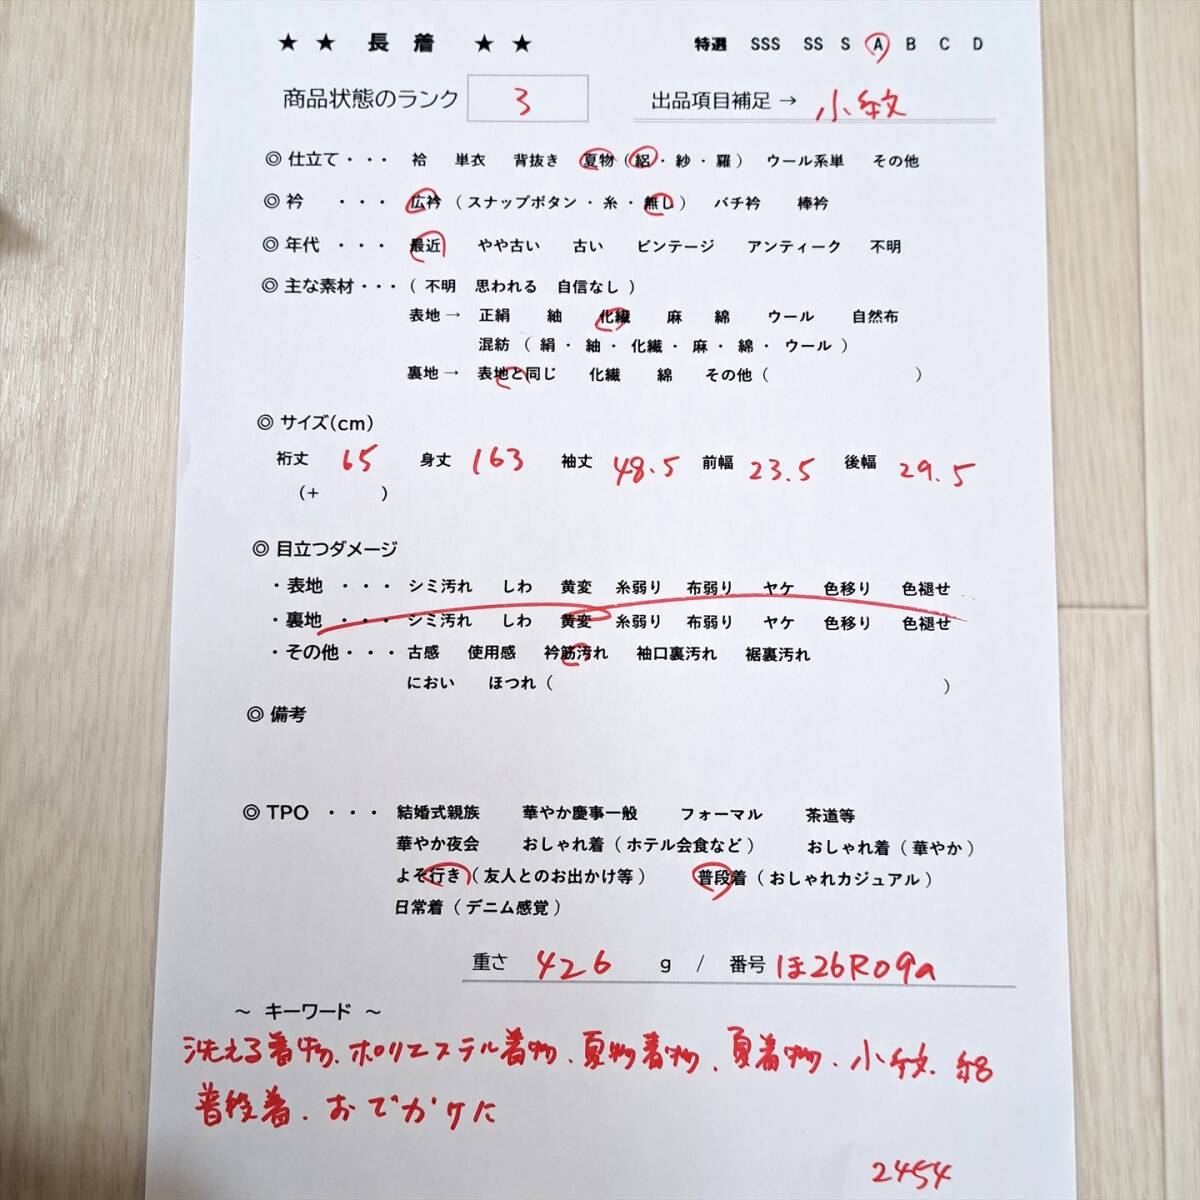 ★ ★ 長 着 ★ ★ 特選 SSS SS S A B C D
商品状態のランク 3 出品項目補足 → 小紋
◎ 仕立て・・・ 袷 単衣 背抜き 夏物（絽・紗・羅） ウール系単 その他
◎ 衿 ・・・ 広衿（スナップボタン・糸・無し） バチ衿 棒衿
◎ 年代 ・・・ 最近 やや古い 古い ビンテージ アンティーク 不明
◎ 主な素材・・・（ 不明 思われる 自信なし ）
表地→ 正絹 紬 化繊 麻 綿 ウール 自然布
混紡 （ 絹・紬・化繊・麻・綿・ウール ）
裏地→ 表地と同じ 化繊 綿 その他（ ）
◎ サイズ(cm)
裄丈 65 身丈 163 袖丈 48.5 前幅 23.5 後幅 29.5
(+ )
◎ 目立つダメージ
・表地 ・・・ シミ汚れ しわ 黄変 糸弱り 布弱り ヤケ 色移り 色褪せ
・裏地 ・・・ シミ汚れ しわ 黄変 糸弱り 布弱り ヤケ 色移り 色褪せ
・その他・・・ 古感 使用感 衿筋汚れ 袖口裏汚れ 裾裏汚れ
におい ほつれ（ ）
◎ 備考
◎ TPO ・・・ 結婚式親族 華やか慶事一般 フォーマル 茶道等
華やか夜会 おしゃれ着（ホテル会食など） おしゃれ着（華やか）
よそ行き（友人とのお出かけ等） 普段着（おしゃれカジュアル）
日常着（デニム感覚）
重さ 426 g / 番号 ほ26R09a
～ キーワード ～
洗える着物、ポリエステル着物、夏物着物、夏着物、小紋、絽
普段着、おでかけに
2454